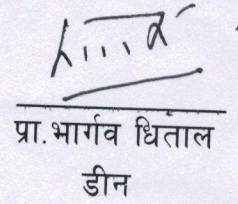 प्रा. भार्गव धिताल
डीन